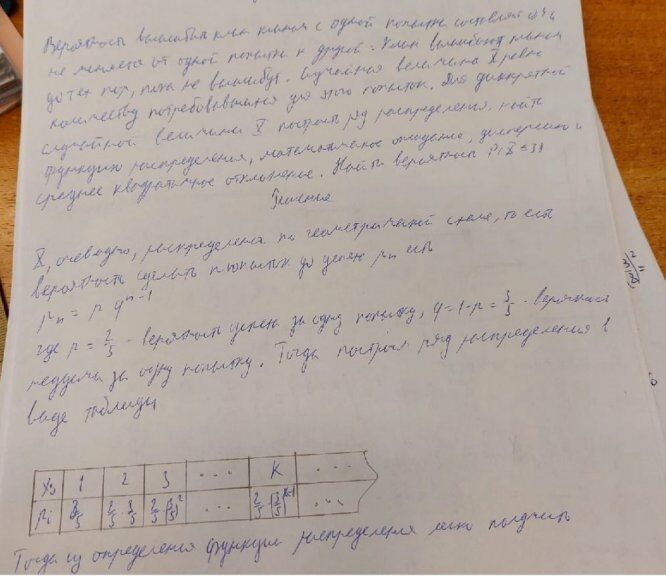 Вероятность вышибить клин клином с одной попытки составляет 0,4 и
не меняется от одной попытки к другой. Клин вышибают клином
до тех пор, пока не вышибут. Случайная величина X равна
количеству потребовавшихся для этого попыток. Для дискретной
случайной величины X построить ряд распределения, найти
функцию распределения, математическое ожидание, дисперсию и
среднее квадратичное отклонение. Найти вероятность P(X≤3)
Решение
X, очевидно, распределена по геометрической схеме, то есть
вероятность сделать n попыток до успеха pₙ есть
pₙ = p qⁿ⁻¹
где p = 2/5 - вероятность успеха за одну попытку, q = 1-p = 3/5 - вероятность
неудачи за одну попытку. Тогда построим ряд распределения в
виде таблицы
Xi 1 2 3 ... K ...
pi 2/5 2/5·3/5 2/5·(3/5)² ... 2/5·(3/5)ᴷ⁻¹ ...
Тогда из определения функции распределения легко получить